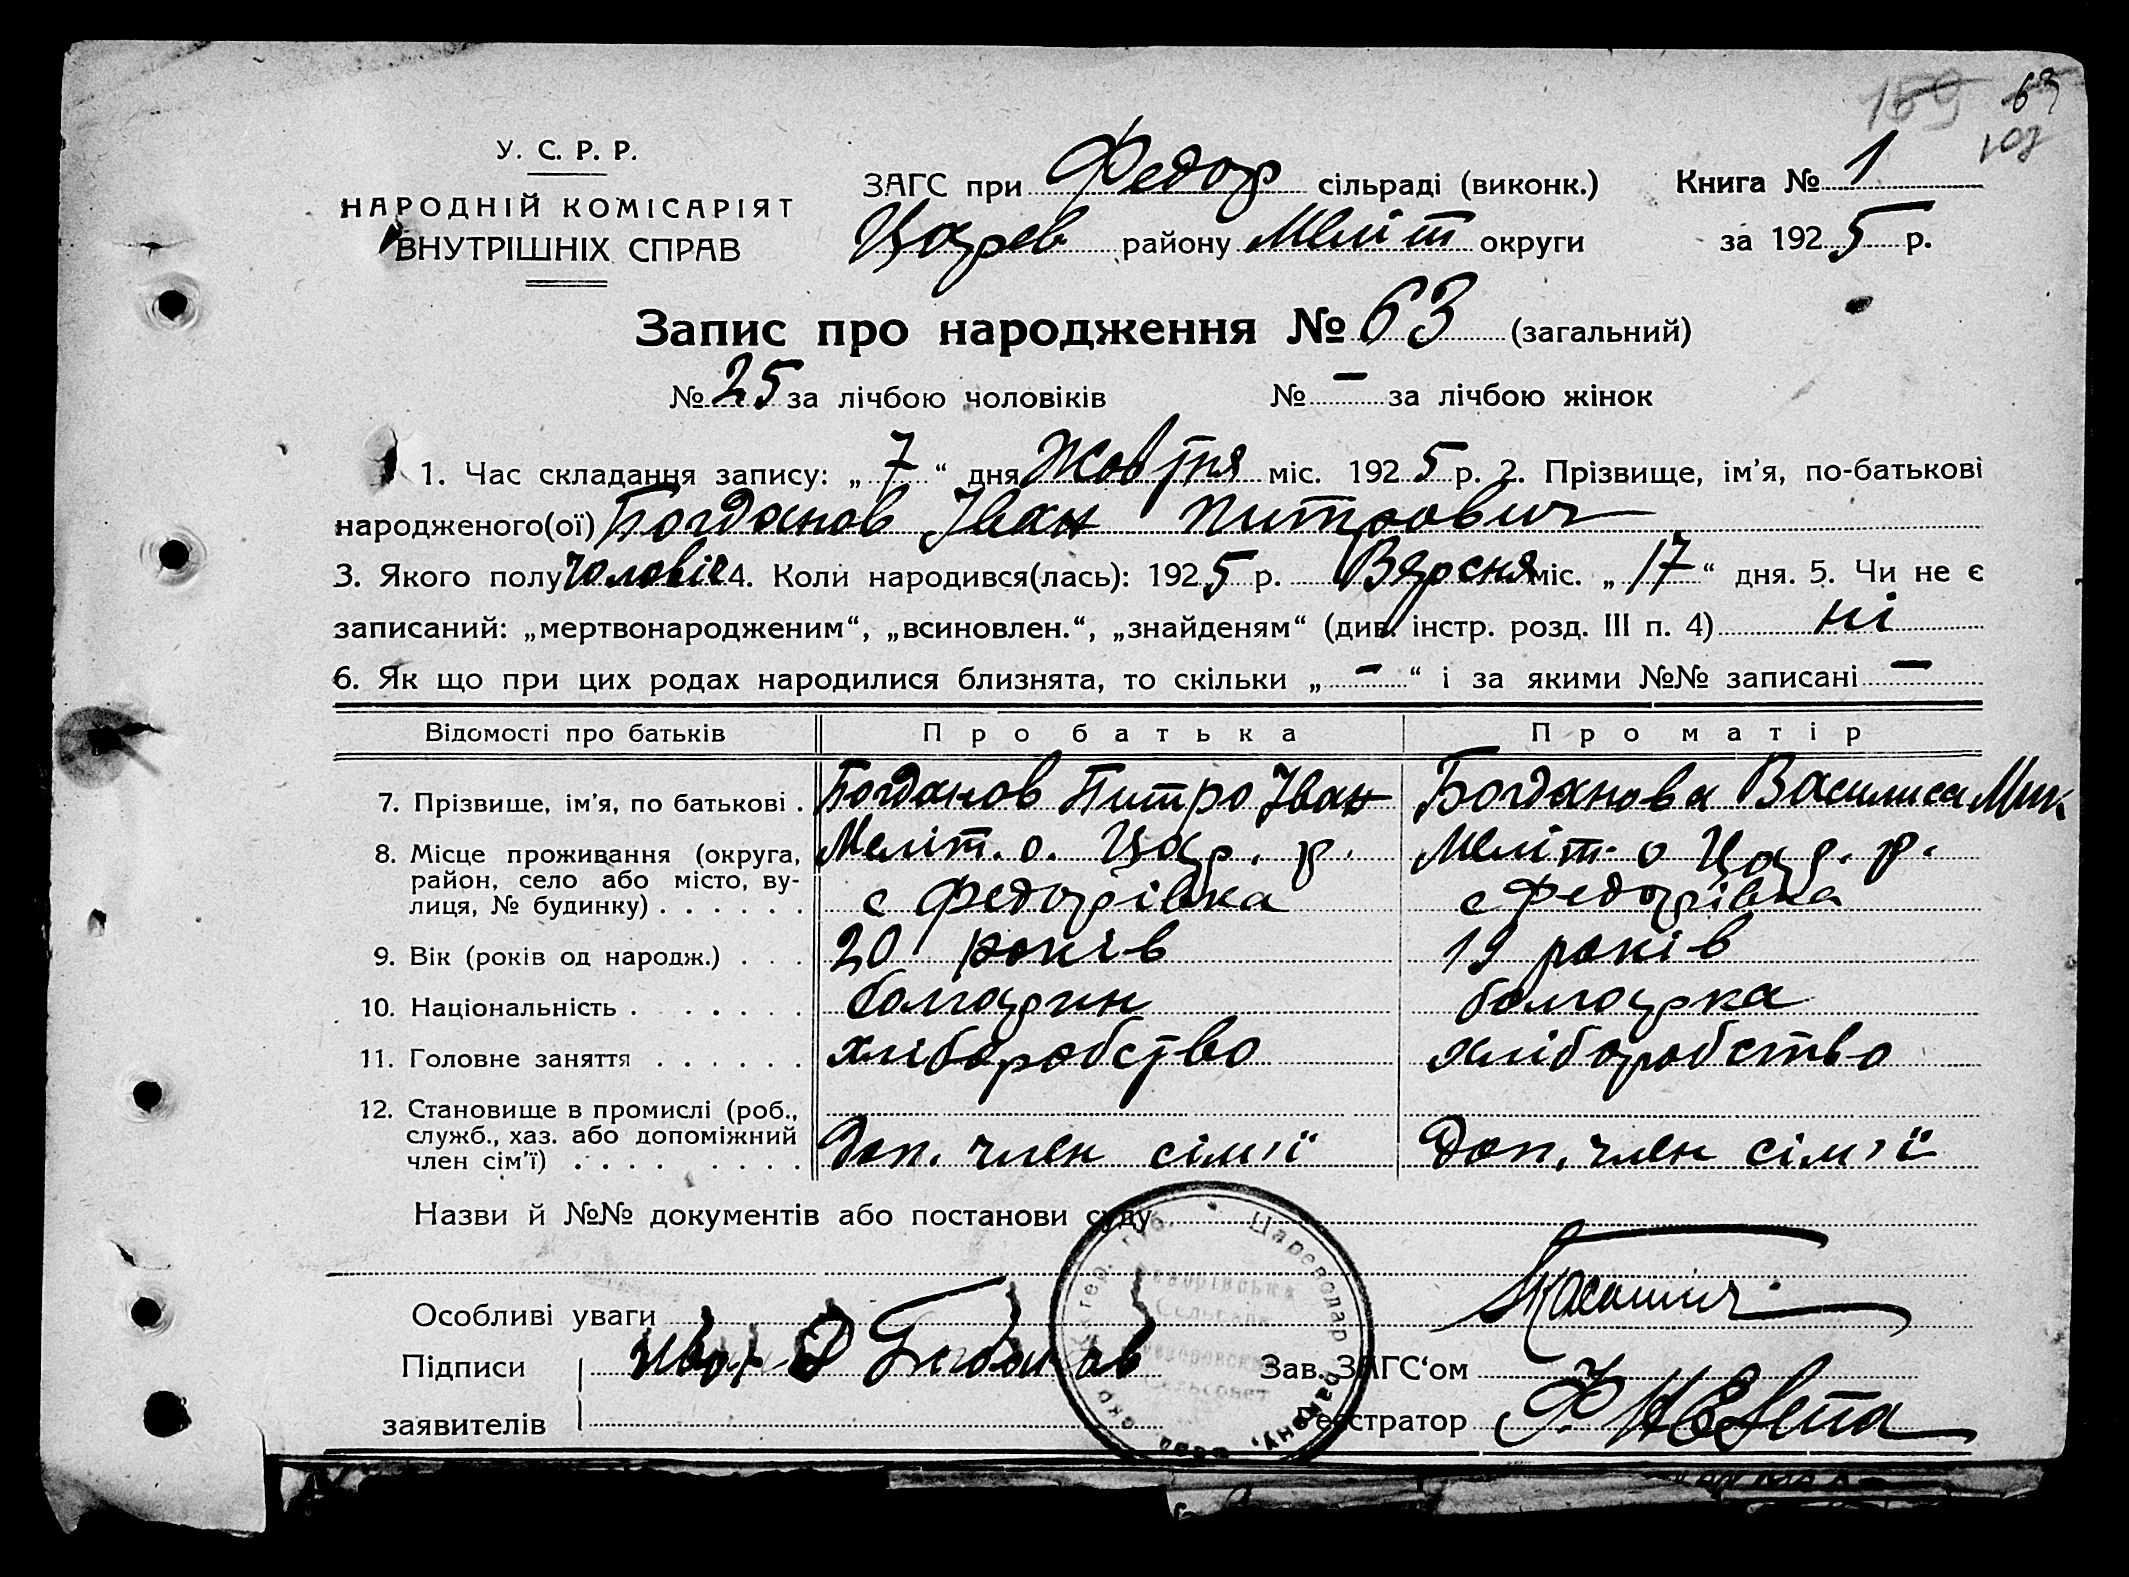 159 63
107
У. С. Р. Р.
НАРОДНІЙ КОМІСАРІЯТ
ВНУТРІШНІХ СПРАВ
ЗАГС при Федор сільраді (виконк.) Книга № 1
Царев району Меліт округи за 1925 р.
Запис про народження № 63 (загальний)
№ 25 за лічбою чоловіків № — за лічбою жінок
1. Час складання запису: „7“ дня Жовтня міс. 1925 р. 2. Прізвище, ім’я, по-батькові
народженого(ої) Богданов Іван Питрович
3. Якого полу чоловіч 4. Коли народився(лась): 1925 р. Вересня міс. „17“ дня. 5. Чи не є
записаний: „мертвонародженим“, „всиновлен.“, „знайденям“ (див. інстр. розд. III п. 4) ні
6. Як що при цих родах народилися близнята, то скільки „—“ і за якими №№ записані —
Відомості про батьків Про батька Про матір
7. Прізвище, ім’я, по батькові . Богданов Питро Іван Богданова Василиса Мик
8. Місце проживання (округа, Меліт. о. Цар. р. Меліт. о Цар. р.
район, село або місто, ву-
лиця, № будинку) . . . . . . с Федорівка с Федорівка
9. Вік (років од народж.) . . . 20 років 19 років
10. Національність . . . . . . . болгарин болгарка
11. Головне заняття . . . . . . хліборобство хліборобство
12. Становище в промислі (роб.,
служб., хаз. або допоміжний
член сім’ї) . . . . . . . . Доп. член сім’ї Доп. член сім’ї
Назви й №№ документів або постанови суду
Цареводар району,
Особливі уваги
Підписи Иван Богданов Зав. ЗАГС‘ом
заявителів Реєстратор